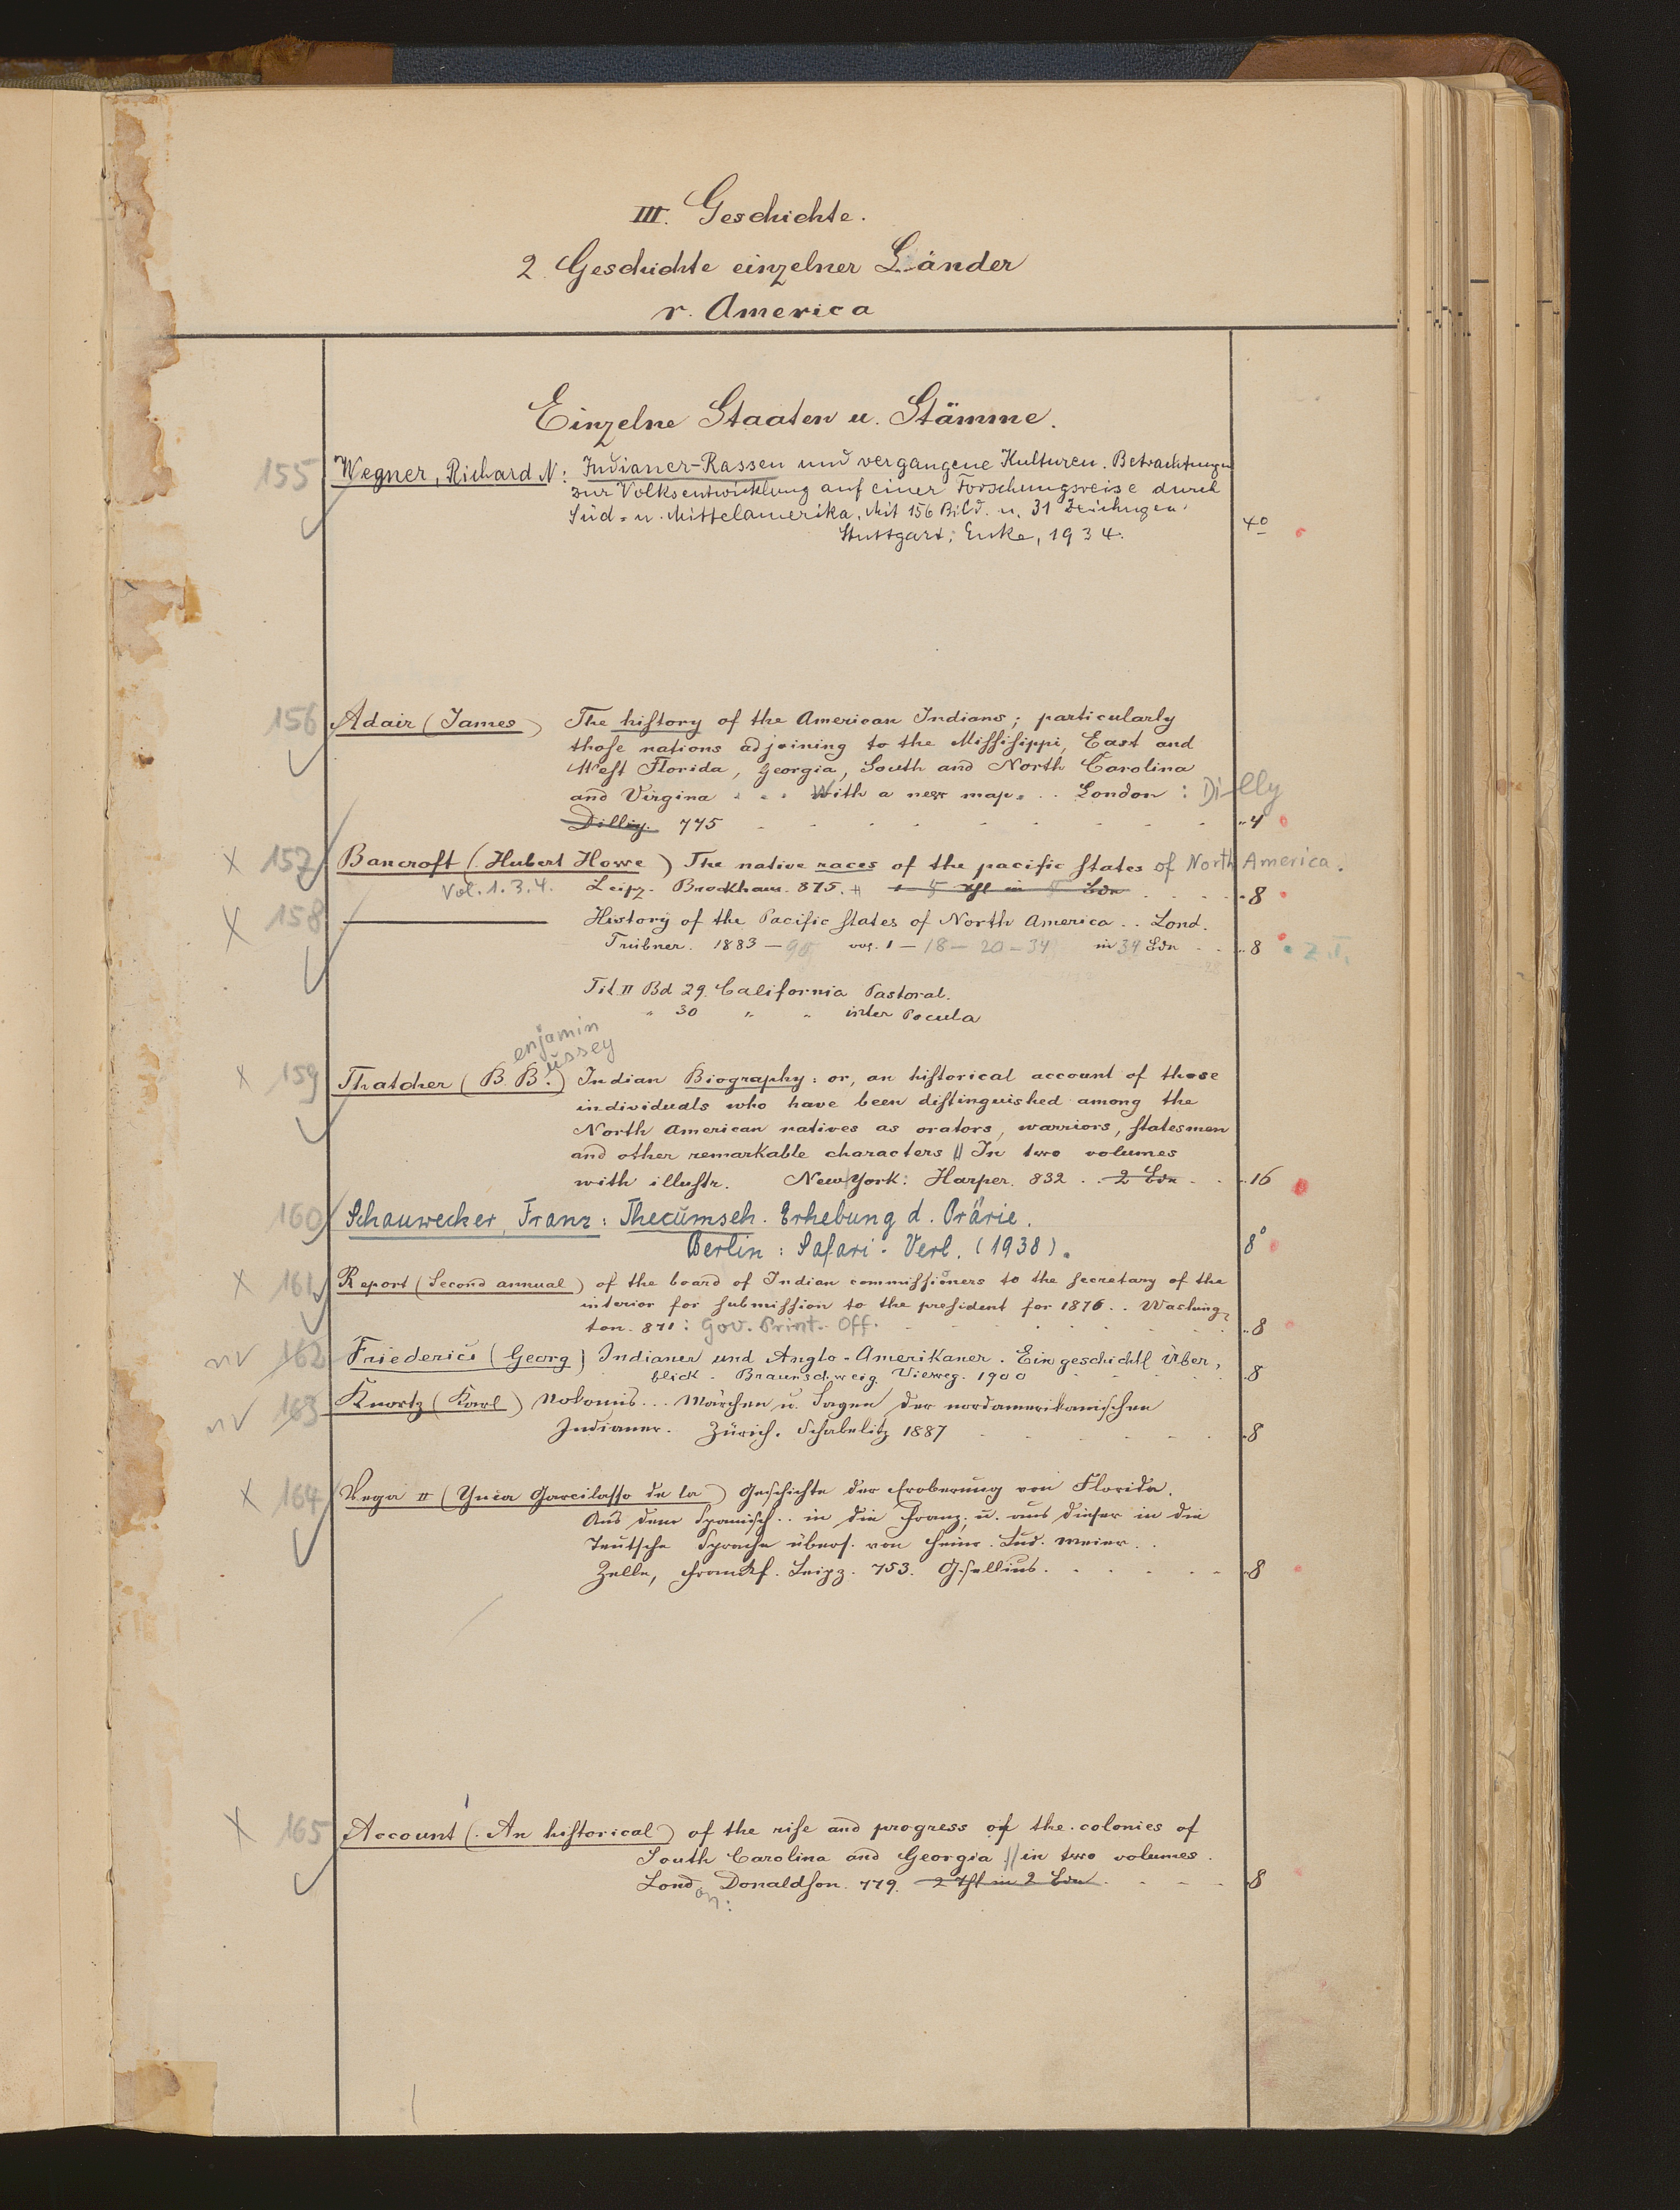 III. Geschichte.
2. Geschichte einzelner Länder
r. America
Einzelne Staaten u. Stämme.
155 Wegner, Richard N: Indianer-Rassen und vergangene Kulturen. Betrachtungen
zur Volksentwicklung auf einer Forschungsreise durch
Süd- u. Mittelamerika. Mit 156 Bild. u. 31 Zeichngen.
Stuttgart: Enke, 1934. 4o
156 Adair (James) The history of the American Indians; particularly
those nations adjoining to the Missisippi, East and
West Florida, Georgia, South and North Carolina
and Virgina . . . With a new map. . . London : Dilly
Dilly. 775 4
x 157 Bancroft (Hubert Howe) The native races of the pacific states of North America.
Vol. 1. 3. 4. Leipz. Brockhaus. 875. 8
x 158 History of the Pacific states of North America . . Lond.
Trübner. 1883 – 90 vol. 1 – 18 – 20 – 34 in 34 Bdn . . 8 z.T.
Tit. II Bd 29. California Pastoral.
" 30 " " inter Pocula
enjamin
ussey
x 159 Thatcher (B. B.) Indian Biography: or, an historical account of those
individuals who have been distinguished among the
North American natives as orators, warriors, statesmen
and other remarkable characters || In two volumes
with illustr. New York: Harper. 832 . . 2 Bdn . . 16
160 Schauwecker, Franz: Thecumseh. Erhebung d. Prärie.
Berlin: Safari-Verl. (1938). 8°
x 161 Report (Second annual) of the board of Indian commissioners to the secretary of the
interior for submission to the president for 1870 . . Washing-
ton. 871: Gov. Print. Off. 8
nv 162 Friederici (Georg) Indianer und Anglo-Amerikaner. Ein geschichtl Über-
blick. Braunschweig. Vieweg. 1900 8
nv 163 Knortz (Karl) Nokomis... Märchen u. Sagen der nordamerikanischen
Indianer. Zürich. Schabelitz 1887 8
x 164 Vega II (Ynca Garcilasso de la) Geschichte der Eroberung von Florida.
Aus dem Spanisch. . in die Franz. u. aus dieser in die
Teutsche Sprache übers. von Heinr. Lud. Meier. .
Zelle, Frankf. Leipz. 753. Gsellius. 8
x 165 Account (An historical) of the rise and progress of the colonies of
South Carolina and Georgia || in two volumes.
London: Donaldson. 779. 2 Thl in 2 Bdn 8